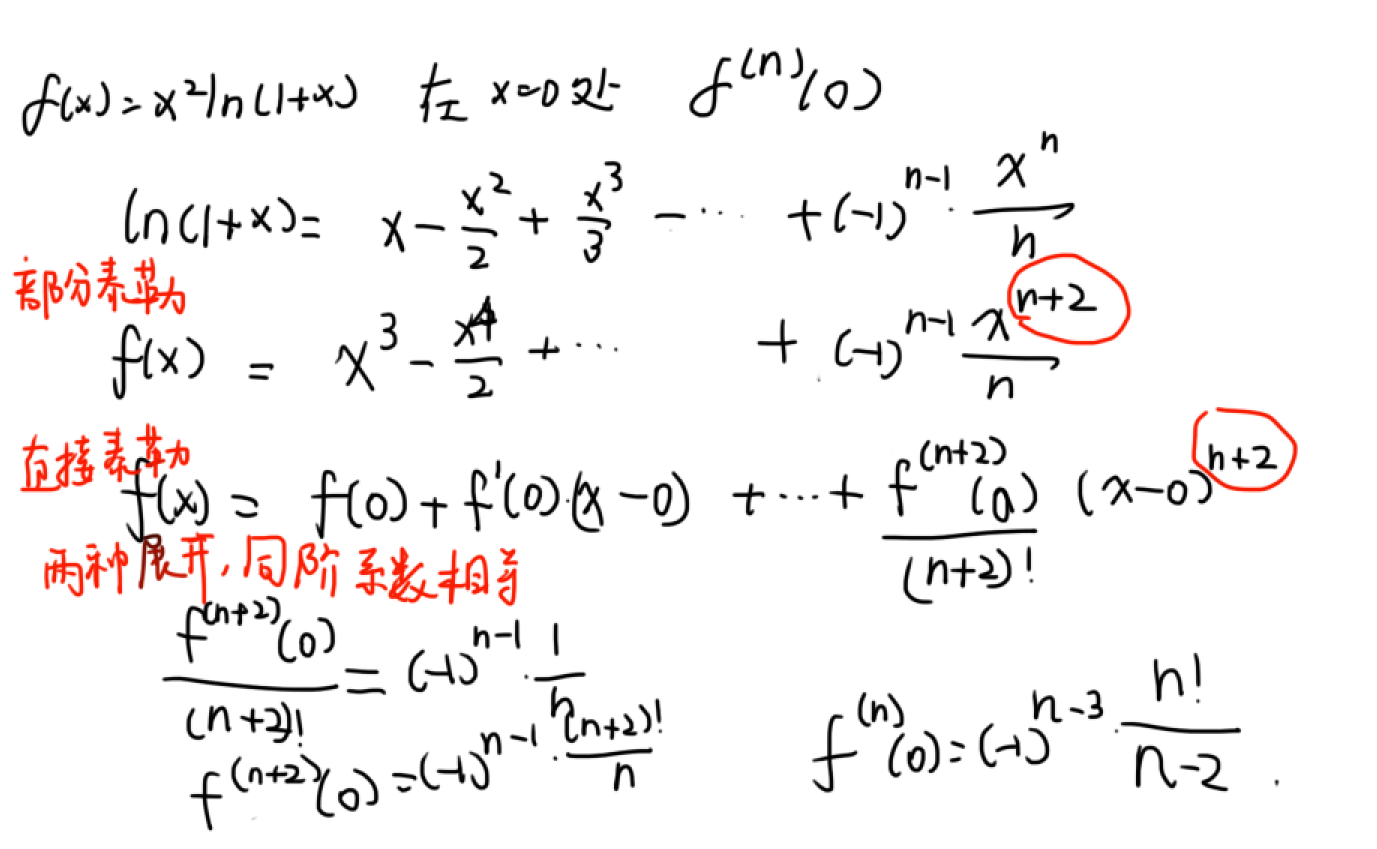 f(x)=x²ln(1+x) 在 x=0处 f⁽ⁿ⁾(0)
ln(1+x)= x - x²/2 + x³/3 - ⋯ + (-1)ⁿ⁻¹· xⁿ/n
部分泰勒
f(x) = x³ - x⁴/2 + ⋯ + (-1)ⁿ⁻¹ xⁿ⁺²/n
直接泰勒
f(x) = f(0) + f'(0)·(x-0) + ⋯ + f⁽ⁿ⁺²⁾(0)/(n+2)! (x-0)ⁿ⁺²
两种展开,同阶系数相等
f⁽ⁿ⁺²⁾(0)/(n+2)! = (-1)ⁿ⁻¹· 1/n
f⁽ⁿ⁺²⁾(0) = (-1)ⁿ⁻¹· (n+2)!/n
f⁽ⁿ⁾(0) = (-1)ⁿ⁻³· n!/(n-2) .